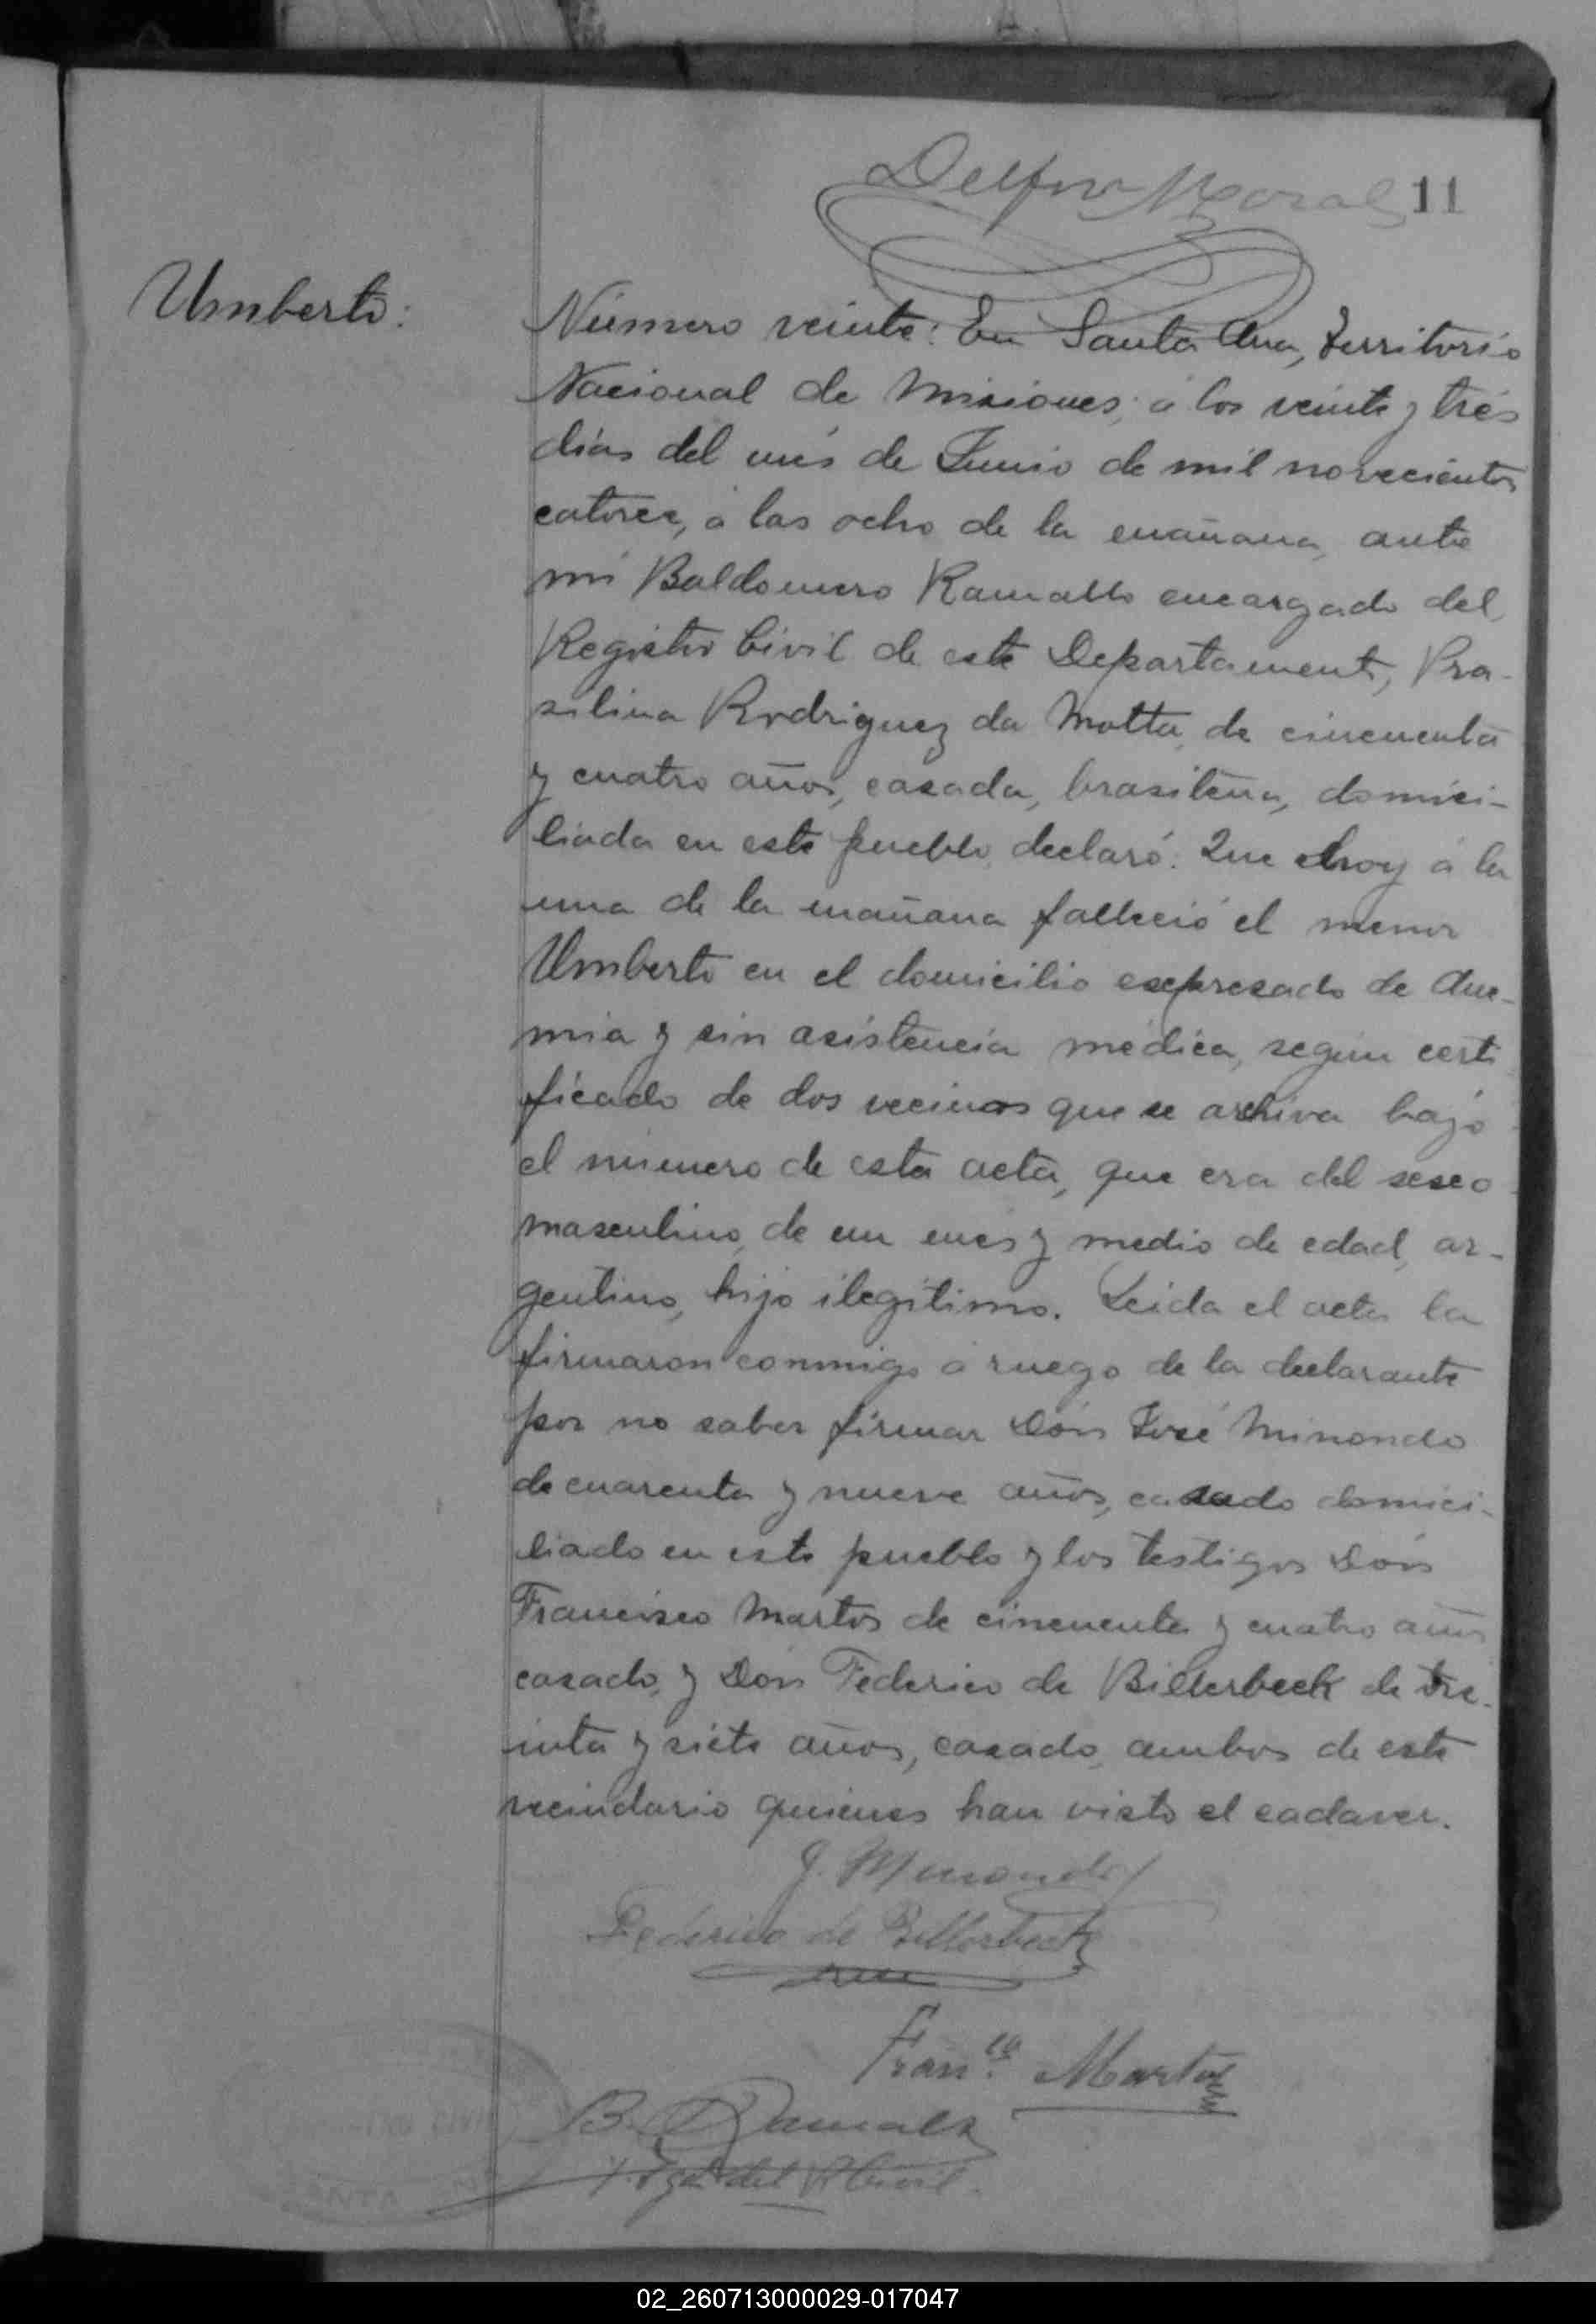 Delfor Moral 11
Umberto:
Número veinte: En Santa Ana, Territorio
Nacional de Misiones, á los veinte y trés
días del més de Junio de mil novecientos
catorce, á las ocho de la mañana, ante
mi Baldomero Ramallo encargado del
Registro Civil de este Departamento, Bra-
silina Rodriguez da Motta, de cincuenta
y cuatro años, casada, brasilera, domici-
liada en este pueblo, declaró: Que hoy á la
una de la mañana falleció el menor
Umberto en el domicilio expresado de Ane-
mia y sin asistencia médica, según certi
ficado de dos vecinos que se archiva bajo
el número de esta acta, que era del sexo
masculino, de un mes y medio de edad, ar-
gentino, hijo ilegítimo. Leida el acta la
firmaron conmigo á ruego de la declarante
por no saber firmar Don José Minondo
de cuarenta y nueve años, casado domici-
liado en este pueblo y los testigos Don
Francisco Martos de cincuenta y cuatro años
casado, y Don Federico de Billerbeck de tre-
inta y siete años, casado, ambos de este
vecindario quienes han visto el cadaver.
J. Minondo
Federico de Billerbeck
Fran.co Martos
B. Ramallo
del R. Civil.
SANTA ANA
02_260713000029-017047